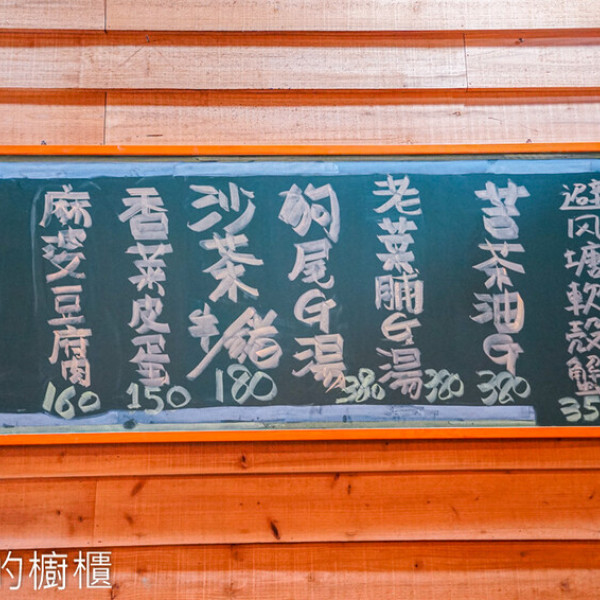 避风塘軟殼蟹 35
苦茶油G 380
老菜脯G湯 380
狗尾G湯 380
沙茶牛 180
香菜皮蛋 150
麻婆豆腐 160
的櫥櫃